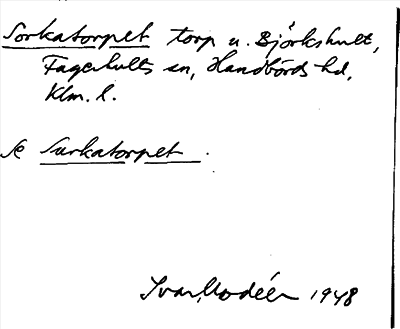 Sorkatorpet torp u. Björkshult,
Fagerhults sn, Handbörds hd,
Klm. l.
Se Surkatorpet.
Ivar Modéer 1948